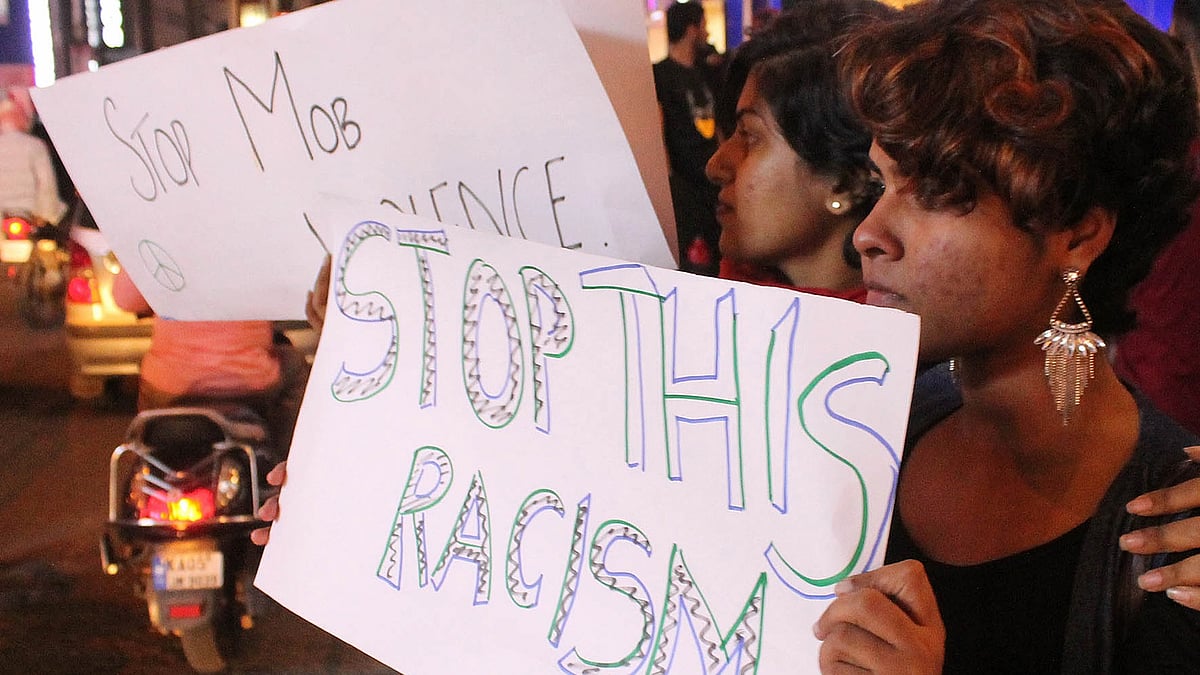 STOP MOB
VIOLENCE.
STOP THIS
RACISM
KA05